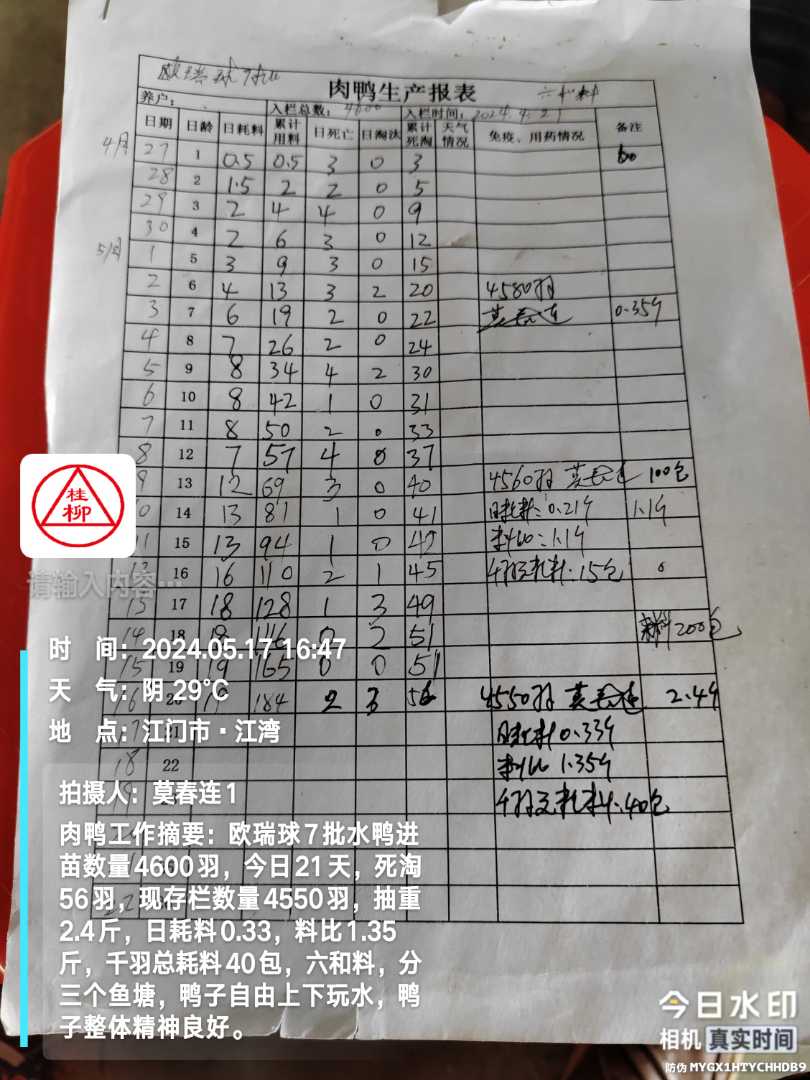 欧瑞球7批
肉鸭生产报表 六和料
养户： 入栏总数：4600 入栏时间：2024.4.27
日期 日龄 日耗料 累计用料 日死亡 日淘汰 累计死淘 天气情况 免疫、用药情况 备注
4月 27 1 0.5 0.5 3 0 3
28 2 1.5 2 2 0 5
29 3 2 4 4 0 9
30 4 2 6 3 0 12
5月 1 5 3 9 3 0 15
2 6 4 13 3 2 20 4580羽
3 7 6 19 2 0 22 莫春连 0.35斤
4 8 7 26 2 0 24
5 9 8 34 4 2 30
6 10 8 42 1 0 31
7 11 8 50 2 0 33
8 12 7 57 4 0 37
9 13 12 69 3 0 40 4560羽 莫春连 100包
10 14 13 81 1 0 41 日耗料：0.21斤 1.1斤
11 15 13 94 1 0 42 料比：1.1斤
16 16 110 2 1 45 千羽总耗料：15包
17 18 128 1 3 49
14 18 18 146 0 2 51 200包
15 19 19 165 0 0 51
16 20 19 184 2 3 56 4550羽 莫春连 2.4斤
21 日耗料0.33斤
18 22 料比 1.35斤
千羽总耗料：40包
桂柳
请输入内容…
时 间：2024.05.17 16:47
天 气：阴 29℃
地 点：江门市·江湾
拍摄人：莫春连1
肉鸭工作摘要：欧瑞球7批水鸭进
苗数量4600羽，今日21天，死淘
56羽，现存栏数量4550羽，抽重
2.4斤，日耗料0.33，料比1.35
斤，千羽总耗料40包，六和料，分
三个鱼塘，鸭子自由上下玩水，鸭
子整体精神良好。
今日水印
相机 真实时间
防伪 MYGX1HTYCHHDB9